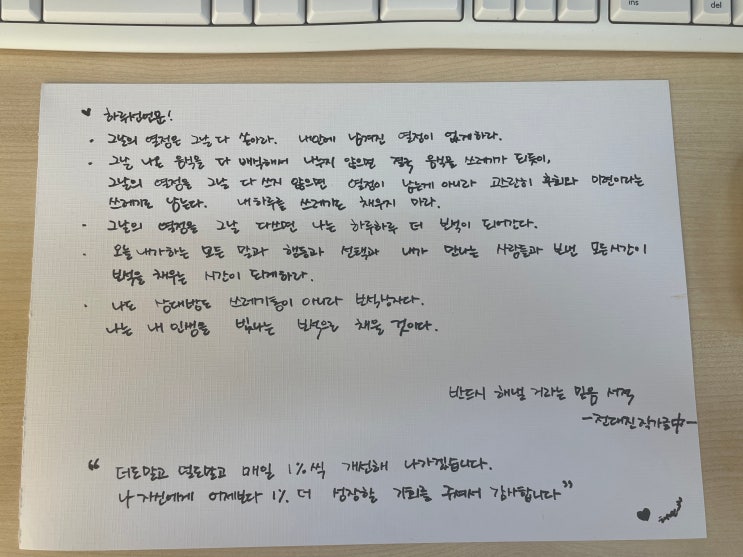 ins
del
♥ 하루선언문!
· 그날의 열정은 그날 다 쏟아라. 내안에 남겨진 열정이 없게하라.
· 그날 나온 음식을 다 배식해서 나누지 않으면 결국 음식물 쓰레기가 되듯이,
그날의 열정을 그날 다 쓰지 않으면 열정이 남는게 아니라 고스란히 후회와 미련이라는
쓰레기로 남는다. 내 하루를 쓰레기로 채우지 마라.
· 그날의 열정을 그날 다쓰면 나는 하루하루 더 보석이 되어간다.
· 오늘 내가 하는 모든 말과 행동과 선택과 내가 만나는 사람들과 보낸 모든시간이
보석을 채우는 시간이 되게하라.
· 나도 상대방도 쓰레기통이 아니라 보석상자다.
나는 내 인생을 빛나는 보석으로 채울 것이다.
반드시 해낼 거라는 믿음 서적
-전대진작가글中-
“ 더도말고 덜도말고 매일 1%씩 개선해 나가겠습니다.
나 자신에게 어제보다 1% 더 성장할 기회를 주셔서 감사합니다 ”